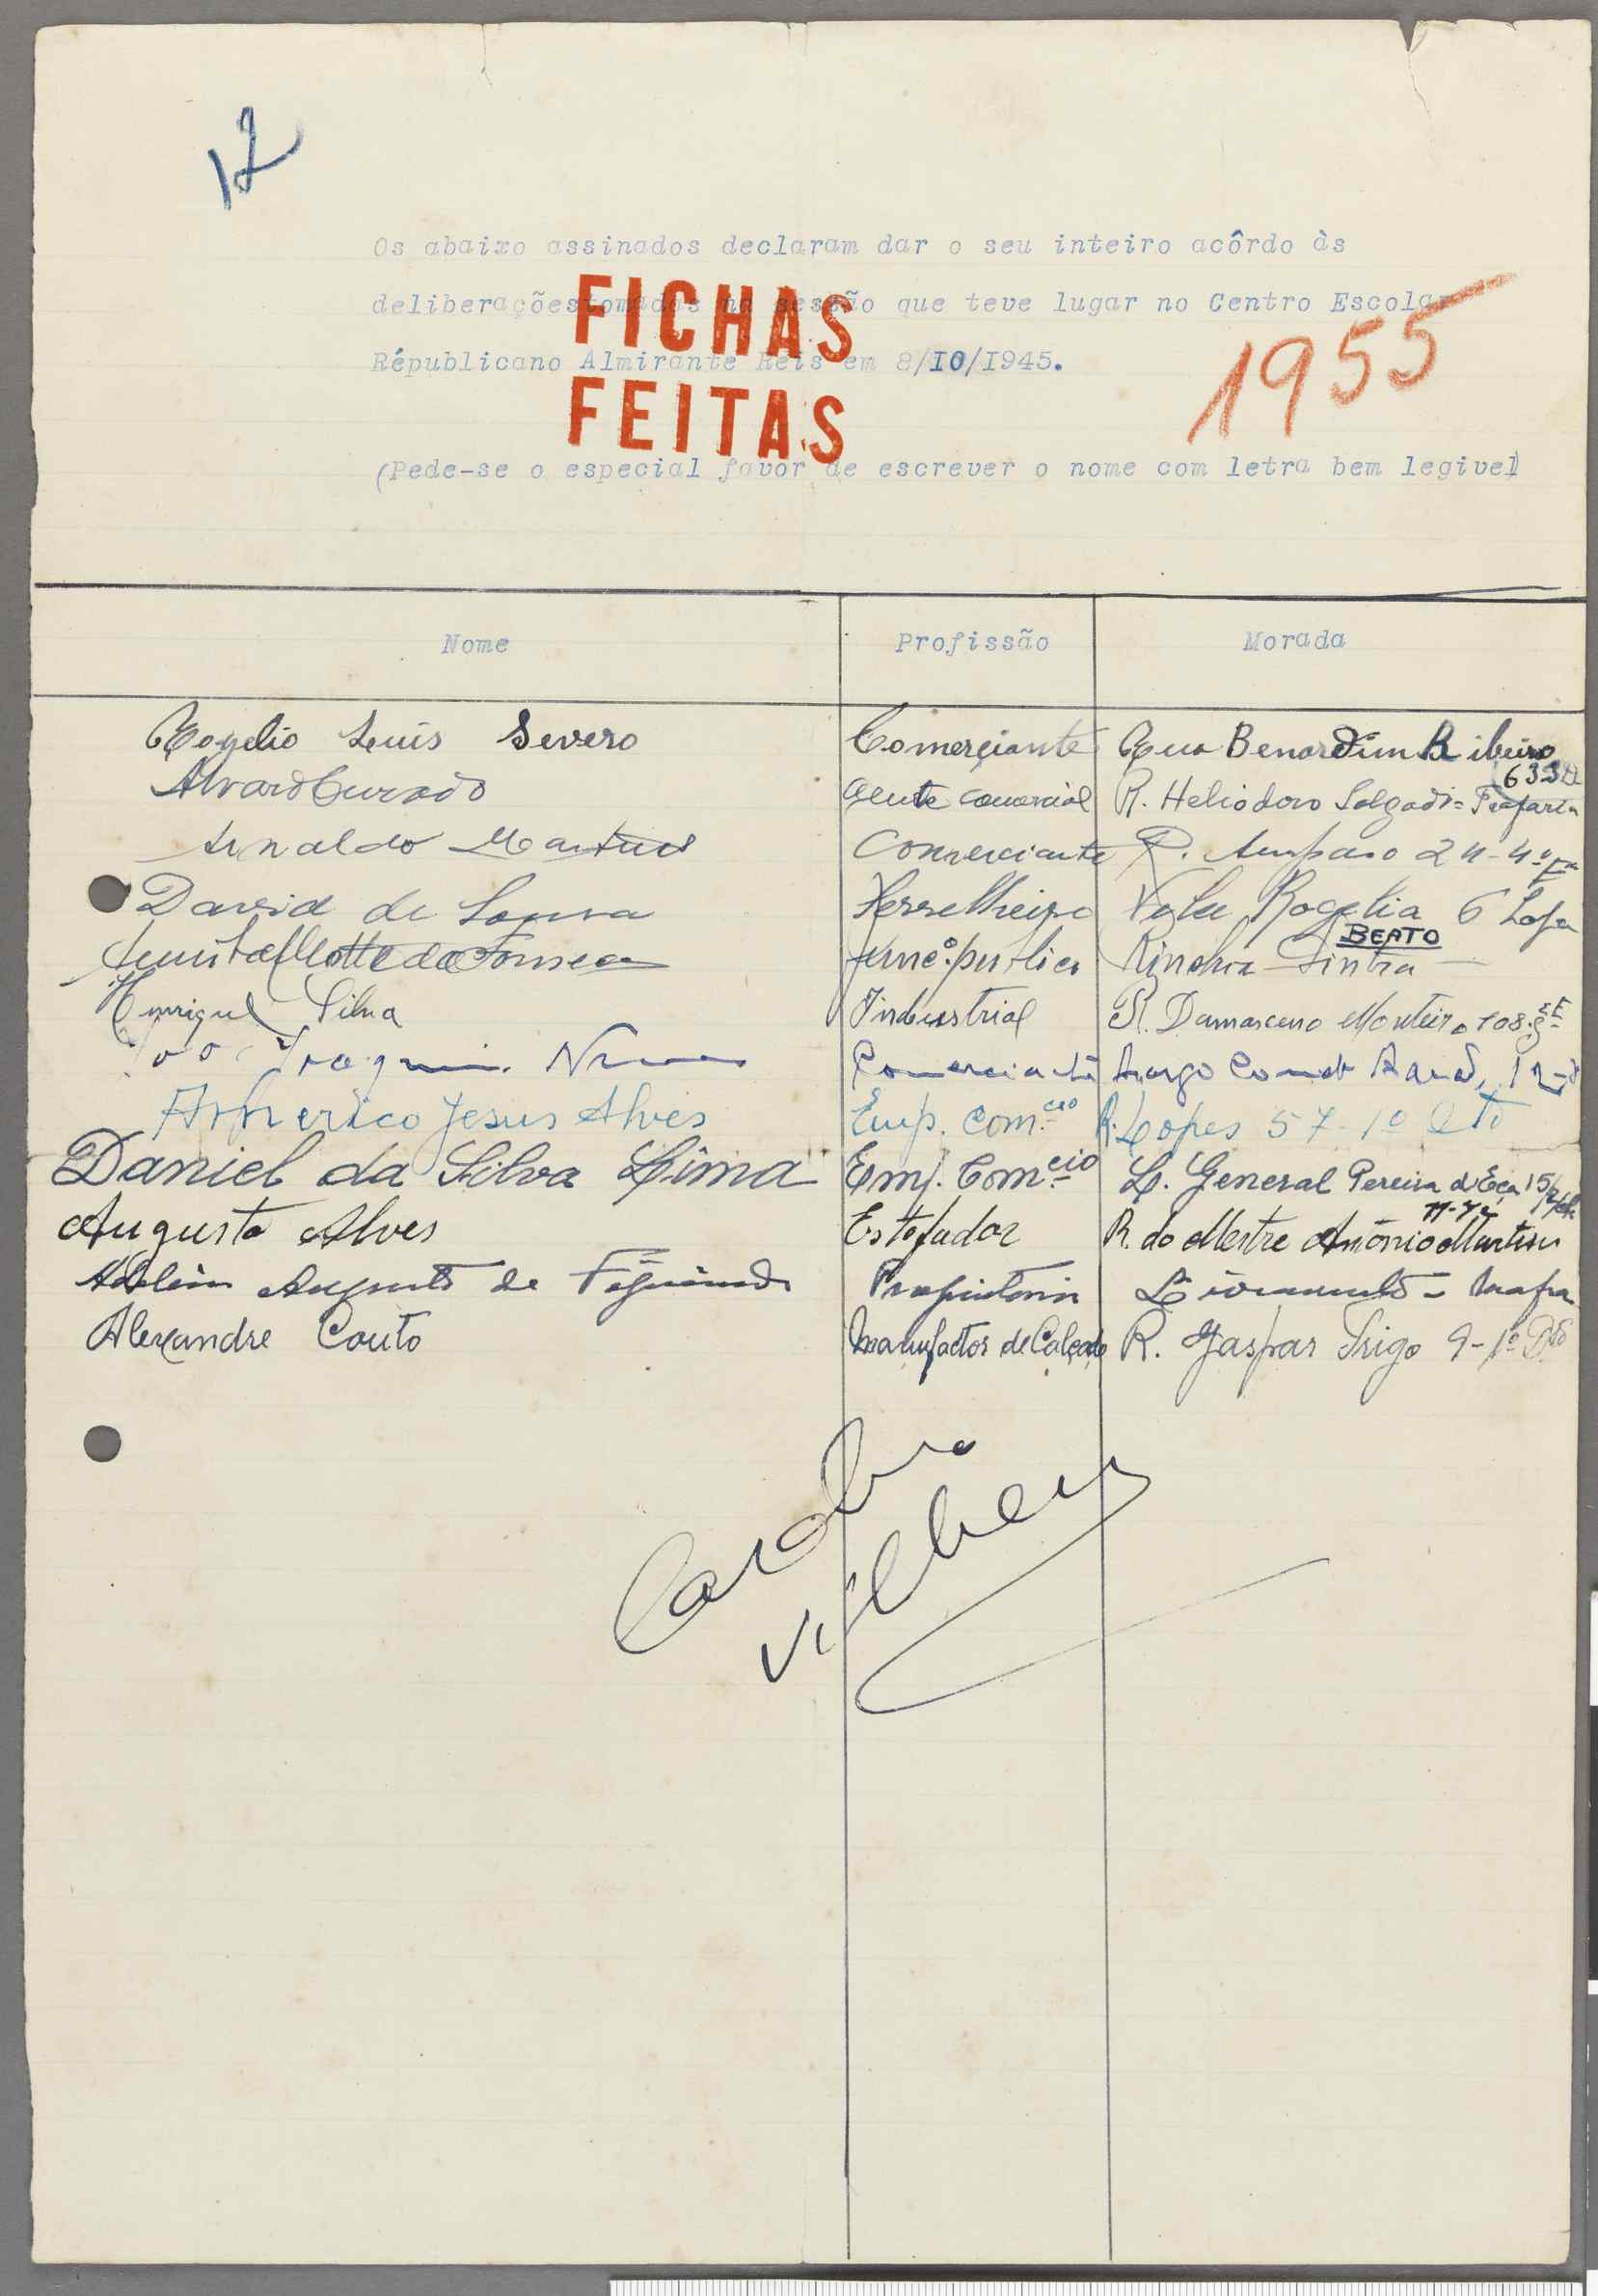 12
Os abaixo assinados declaram dar o seu inteiro acôrdo às
deliberaçõestomadas na sessão que teve lugar no Centro Escolar
Républicano Almirante Reis em 8/10/1945.
FICHAS
FEITAS
1955
(Pede-se o especial favor de escrever o nome com letra bem legivel)
Nome Profissão Morada
Rogelio Luis Severo Comerciante Rua Benardim Ribeiro
63
Alvaro Curado Agente comercial R. Heliodoro Salgado = Trafaria
Arnaldo Martins Comerciante R. Amparo 24-4º
David de Sousa Serralheiro Vila Rogelia 6
BEATO
da Fonseca func.º publico Rinchoa Sintra
Henrique Silva Industrial R. Damasceno Monteiro 108
Joaquim Comerciante Largo
Américo Jesus Alves Emp. Com.cio R. Lopes 57-1º Dto
Daniel da Silva Lima Emp. Com.cio L. General Pereira d'Eça 15
Augusto Alves Estofador R. do Mestre António Martins
Augusto de Figueiredo Proprietario Livramento - Mafra
Alexandre Couto Manufactor de Calçado R. Gaspar Trigo 9-1º Dto